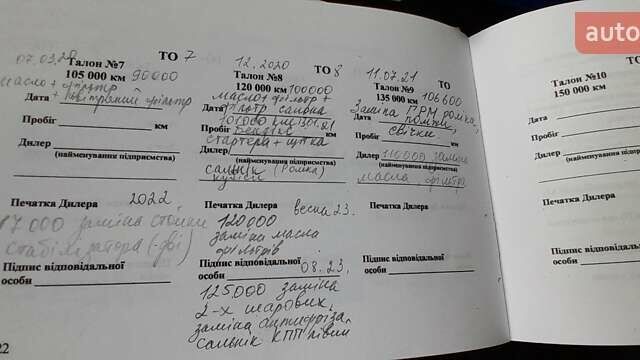 auto
07.03.20 ТО 7
Талон №7
105 000 км 90000
масло + фільтр
+ повітряний фільтр
Дата
Пробіг км
Дилер
(найменування підприємства)
Печатка Дилера 2022
заміна стойки
стабілізатора (-дві)
Підпис відповідальної
особи
22
12.2020 ТО 8
Талон №8
120 000 км 100000
масло + фільтр +
Дата фільтр салона
101000 км
Пробіг Бендікс км
стартера + щітка
Дилер
(найменування підприємства)
сальнік
Печатка Дилера весна 23.
120000
заміна масла
фільтрів
Підпис відповідальної
особи 08.23.
125000 заміна
2-х шарових,
заміна антифріза,
сальнік КПП лівий
11.07.21 ТО 9
Талон №9
135 000 км 106600
Заміна ГРМ роліка,
Дата помпи,
Пробіг свічки км
Дилер 110000 заміна
(найменування підприємства)
масла, фільтра
Печатка Дилера
Підпис відповідальної
особи
Талон №10
150 000 км
Дата
Пробіг
Дилер
(найменування
Печатка Дилера
Підпис відповідальної
особи